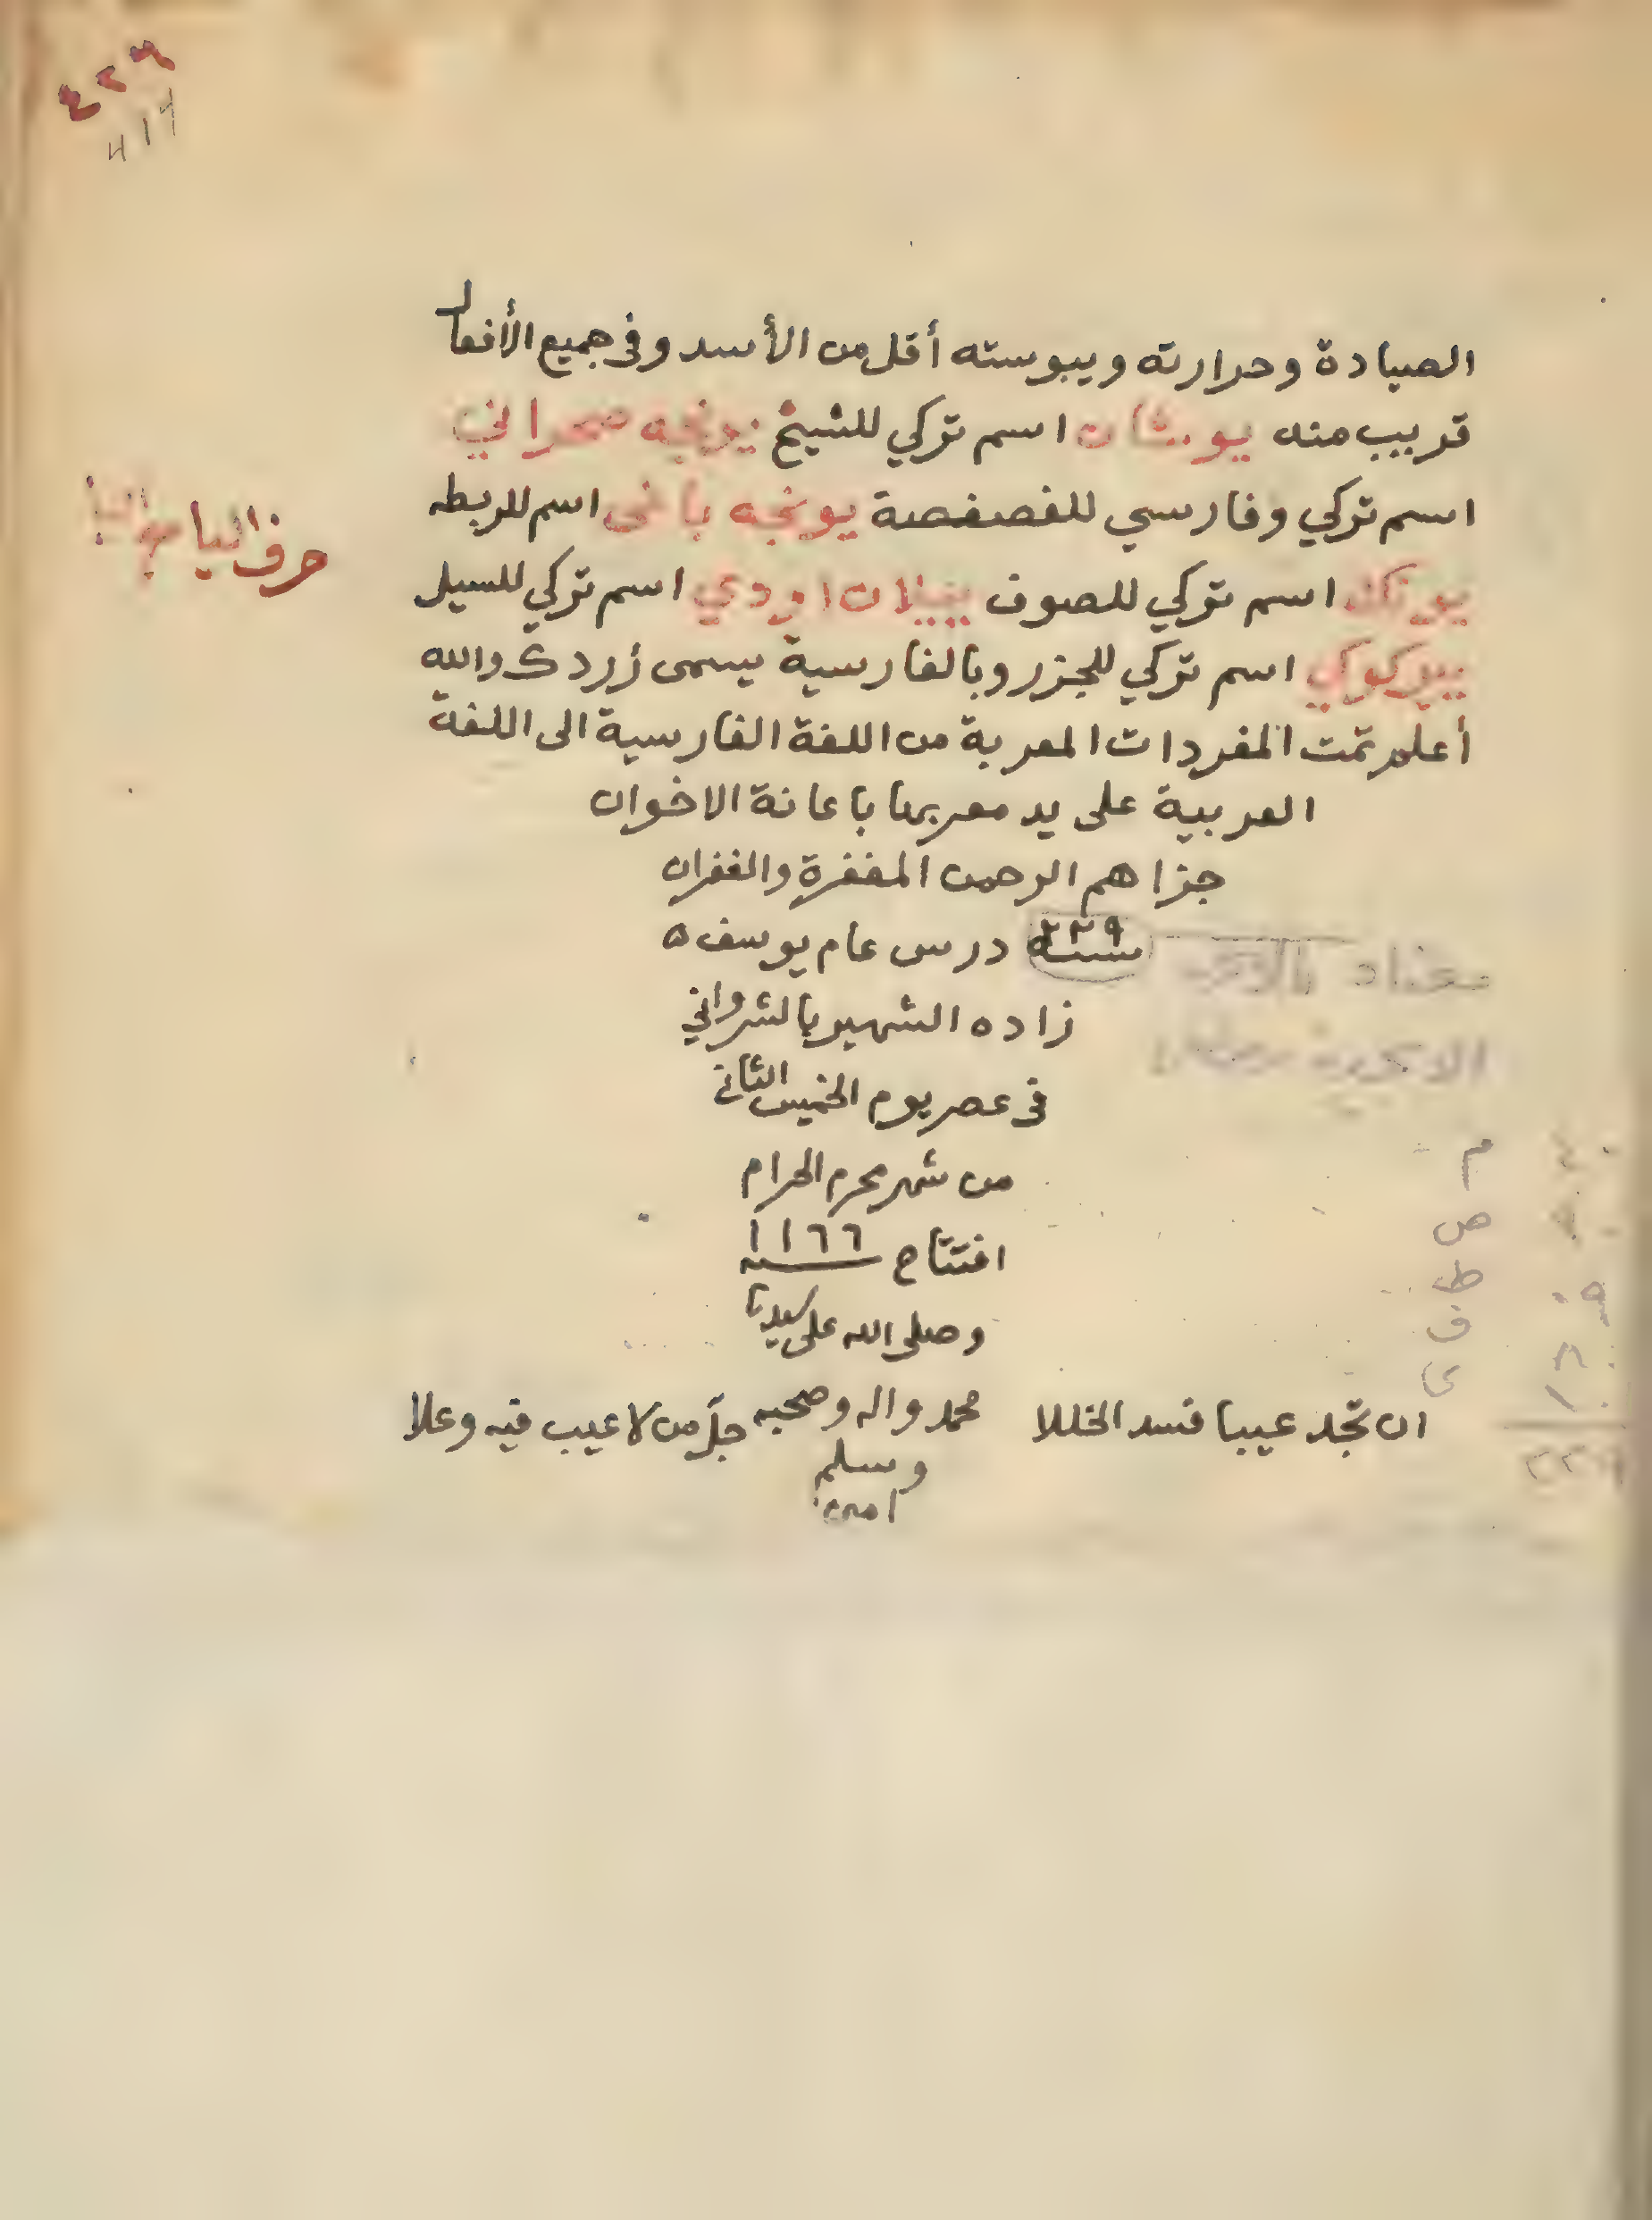 ٤٢٦
٤١٦
الصيادة وحرارته ويبوسته أقل من الأسد وفى جميع الأفعال
قريب منه يوشان اسم تركي للشيخ يونجه صحراني
اسم تركي وفارسي للفصفصة يونجه باغى اسم للربطه
يونك اسم تركي للصوف ييلان اودي اسم تركي للسيل
حرف اليا مع اليا
يير كوكي اسم تركي للجزر وبالفارسية يسمى زردك والله
أعلم تمت المفردات المعربة من اللغة الفارسية الى اللغة
العربية على يد معربها باعانة الاخوان
جزاهم الرحمن المغفرة والغفران
سنة ٢٢٩ درس عام يوسف ٥
زاده الشهير بالشرواني
فى عصر يوم الخميس الثانى
من شهر محرم الحرام
افتتاح سنه ١١٦٦
وصلى الله على سيدنا
محمد واله وصحبه
وسلم
امين
ان تجد عيبا فسد الخللا جلّ من لا عيب فيه وعلا
م
ص
ط
ف
ى